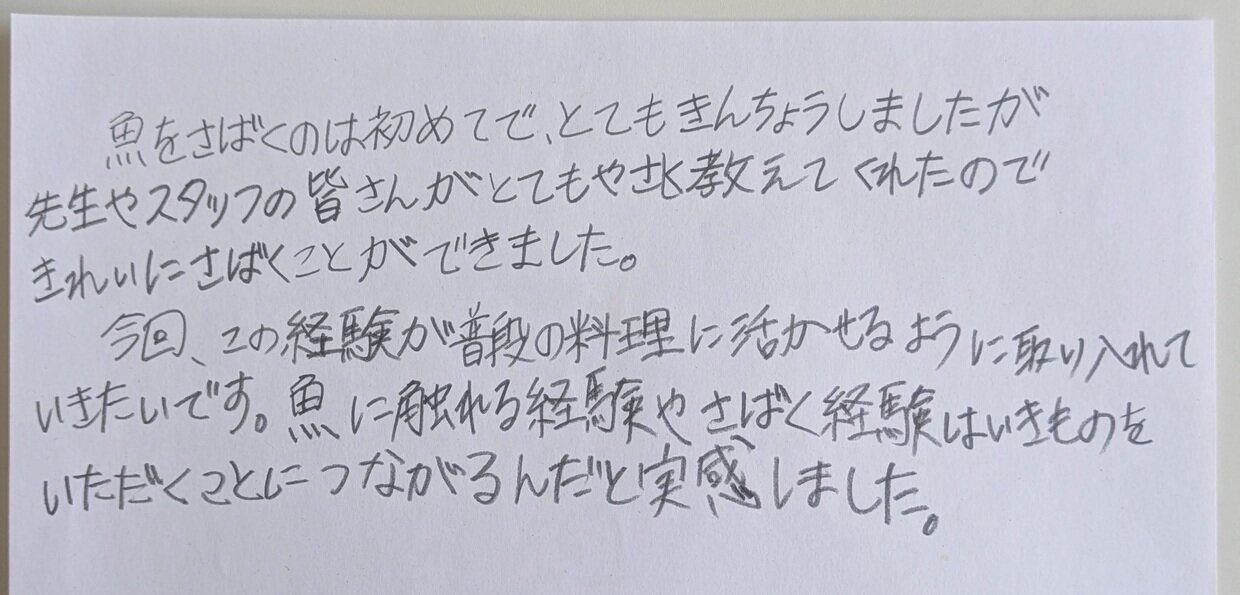 魚をさばくのは初めてで、とてもきんちょうしましたが
先生やスタッフの皆さんがとてもやさしく教えてくれたので
きれいにさばくことができました。
今回、この経験が普段の料理に活かせるように取り入れて
いきたいです。魚に触れる経験やさばく経験はいきものを
いただくことにつながるんだと実感しました。